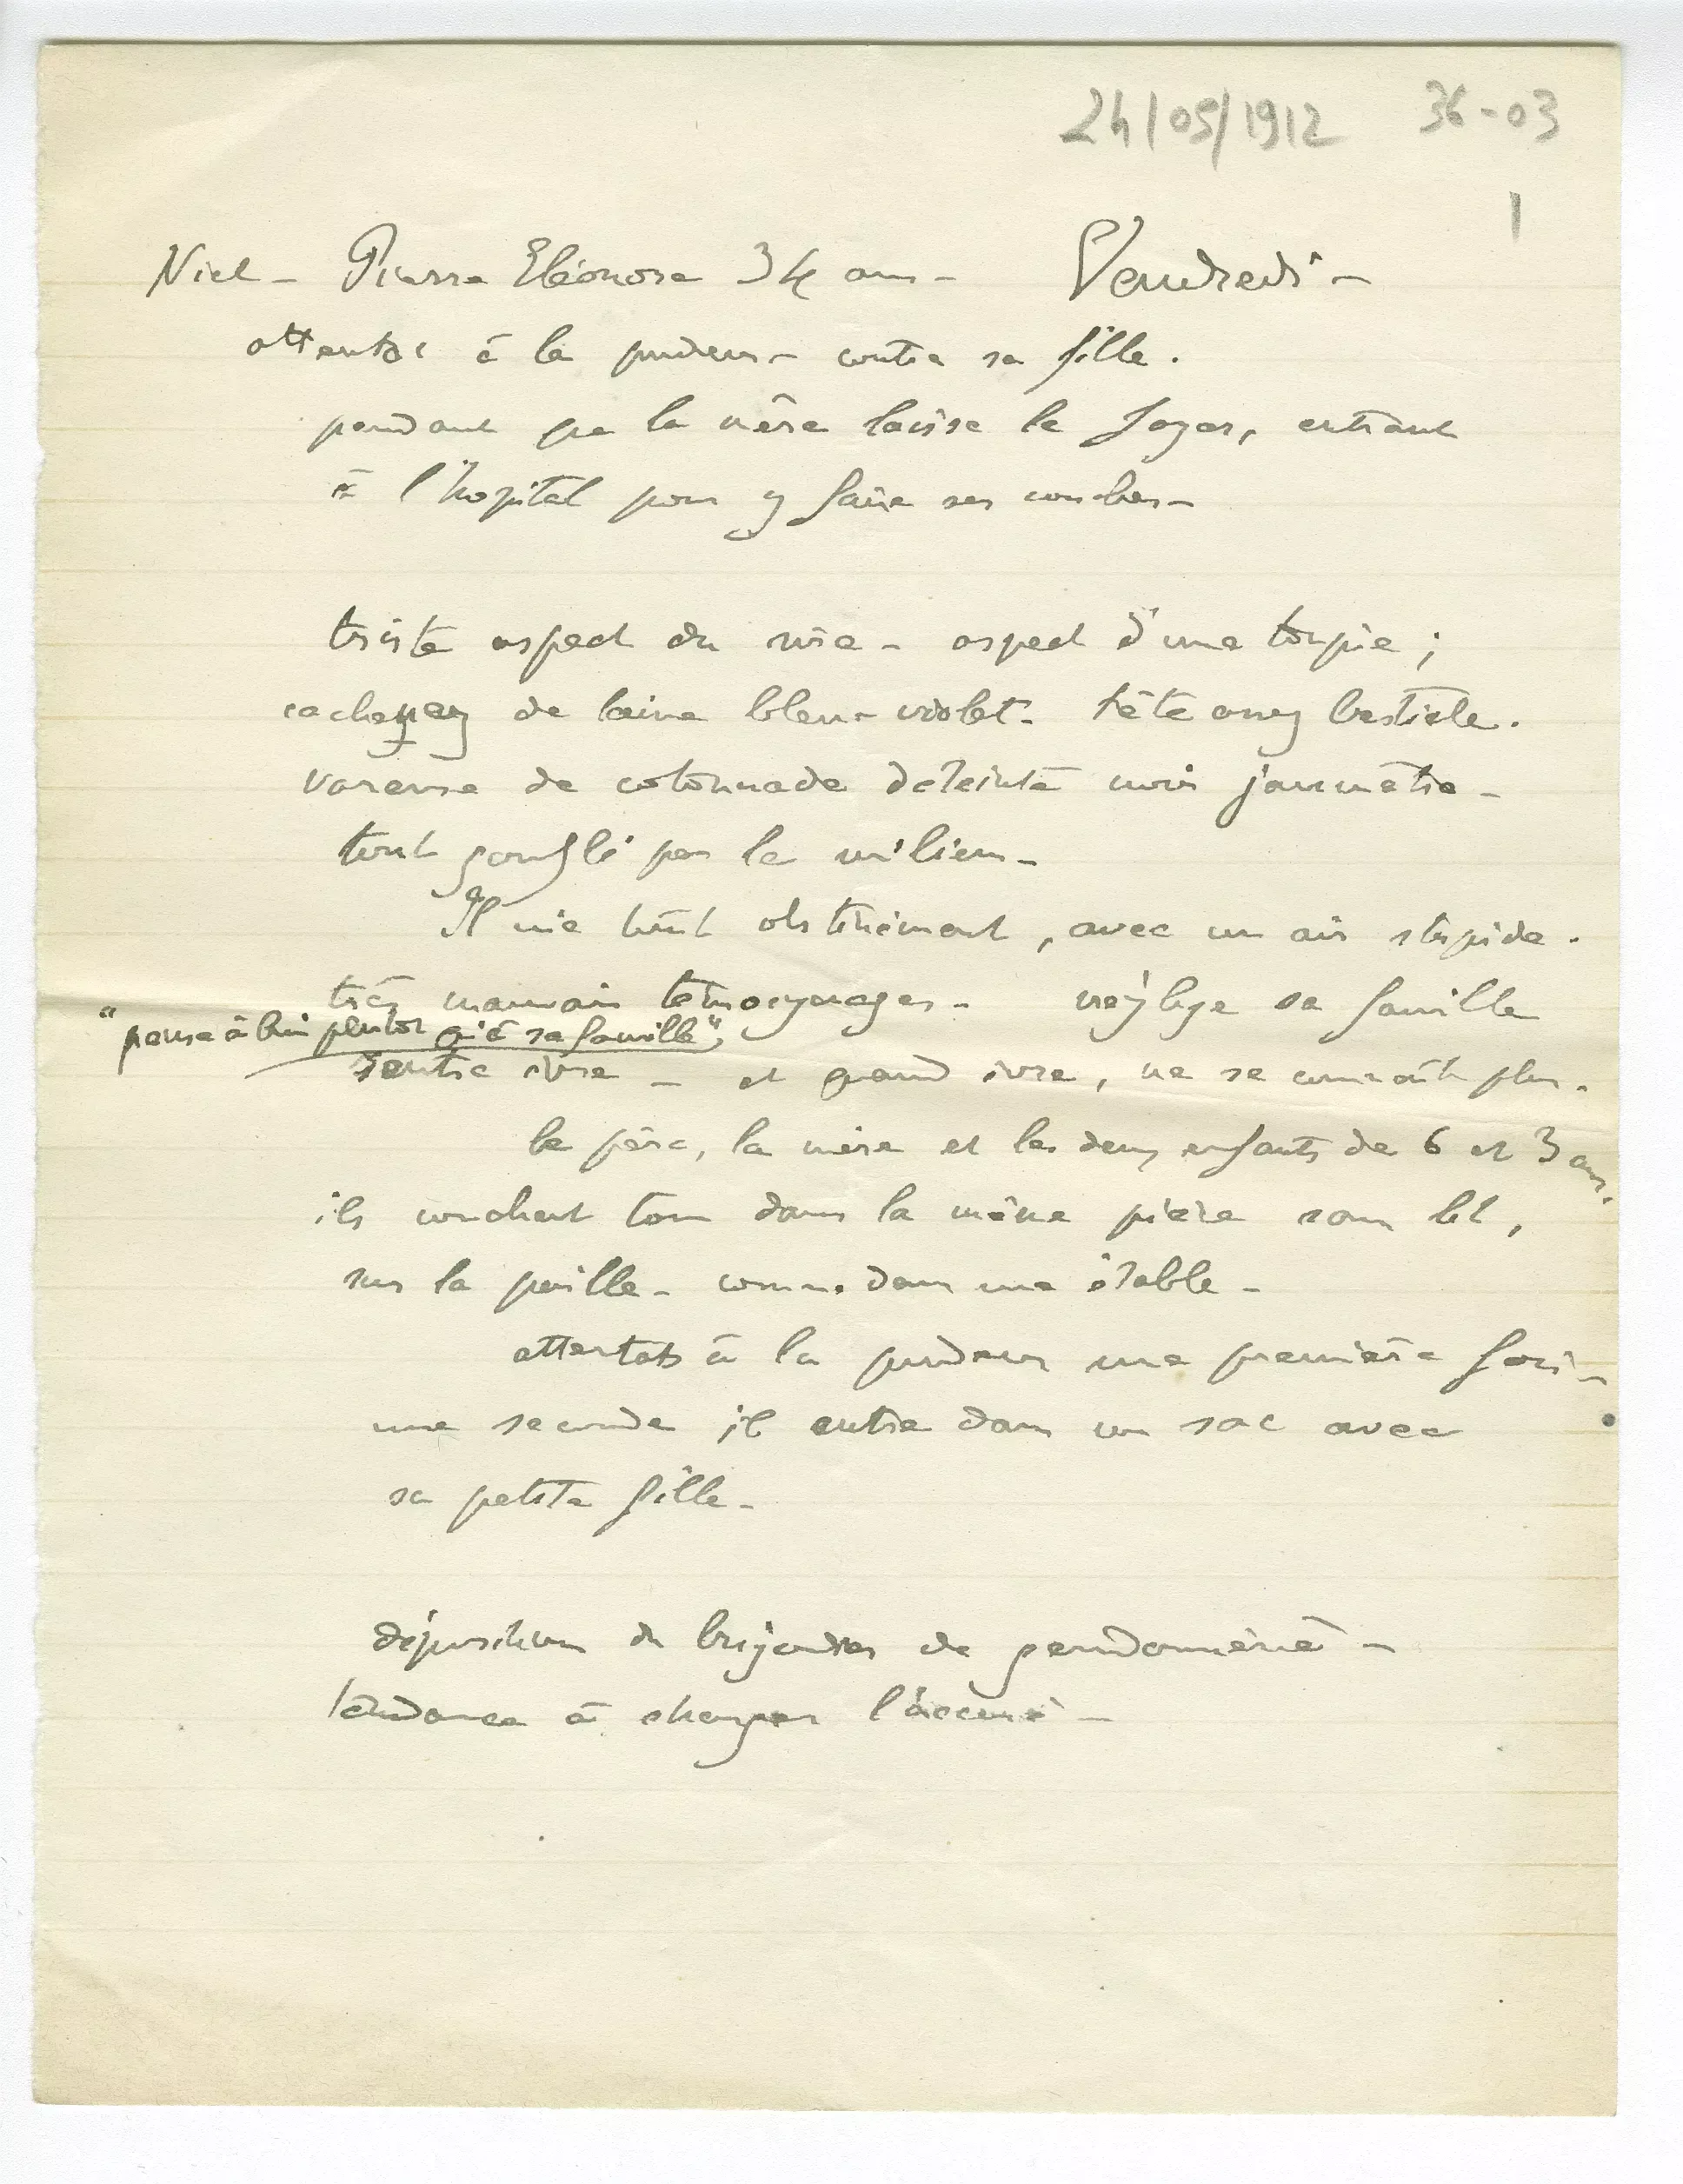 24/05/1912 36-03
1
Niel - Pierre Eléonore 34 ans - Vendredi -
attentat à la pudeur - contre sa fille.
pendant que la mère laisse le foyer, entrant
à l'hopital pour y faire ses couches -
triste aspect du - aspect d'une toupie ;
cachenez de laine bleu-violet. tête assez bestiale.
vareuse de cotonnade déteinte noir jaunâtre -
tout gonflé par le milieu -
Il nie tout obstinément, avec un air stupide.
très mauvais témoignages - néglige sa famille
"pense à lui plutôt qu'à sa famille",
rentre ivre - et quand ivre, ne se connaît plus.
le père, la mère et les deux enfants de 6 et 3 ans.
ils couchent tous dans la même pièce sans lit,
sur la paille - comme dans une étable -
attentats à la pudeur une première fois -
une seconde il entre dans un sac avec
sa petite fille -
déposition du brigadier de gendarmerie -
tendance à charger l'accusé -